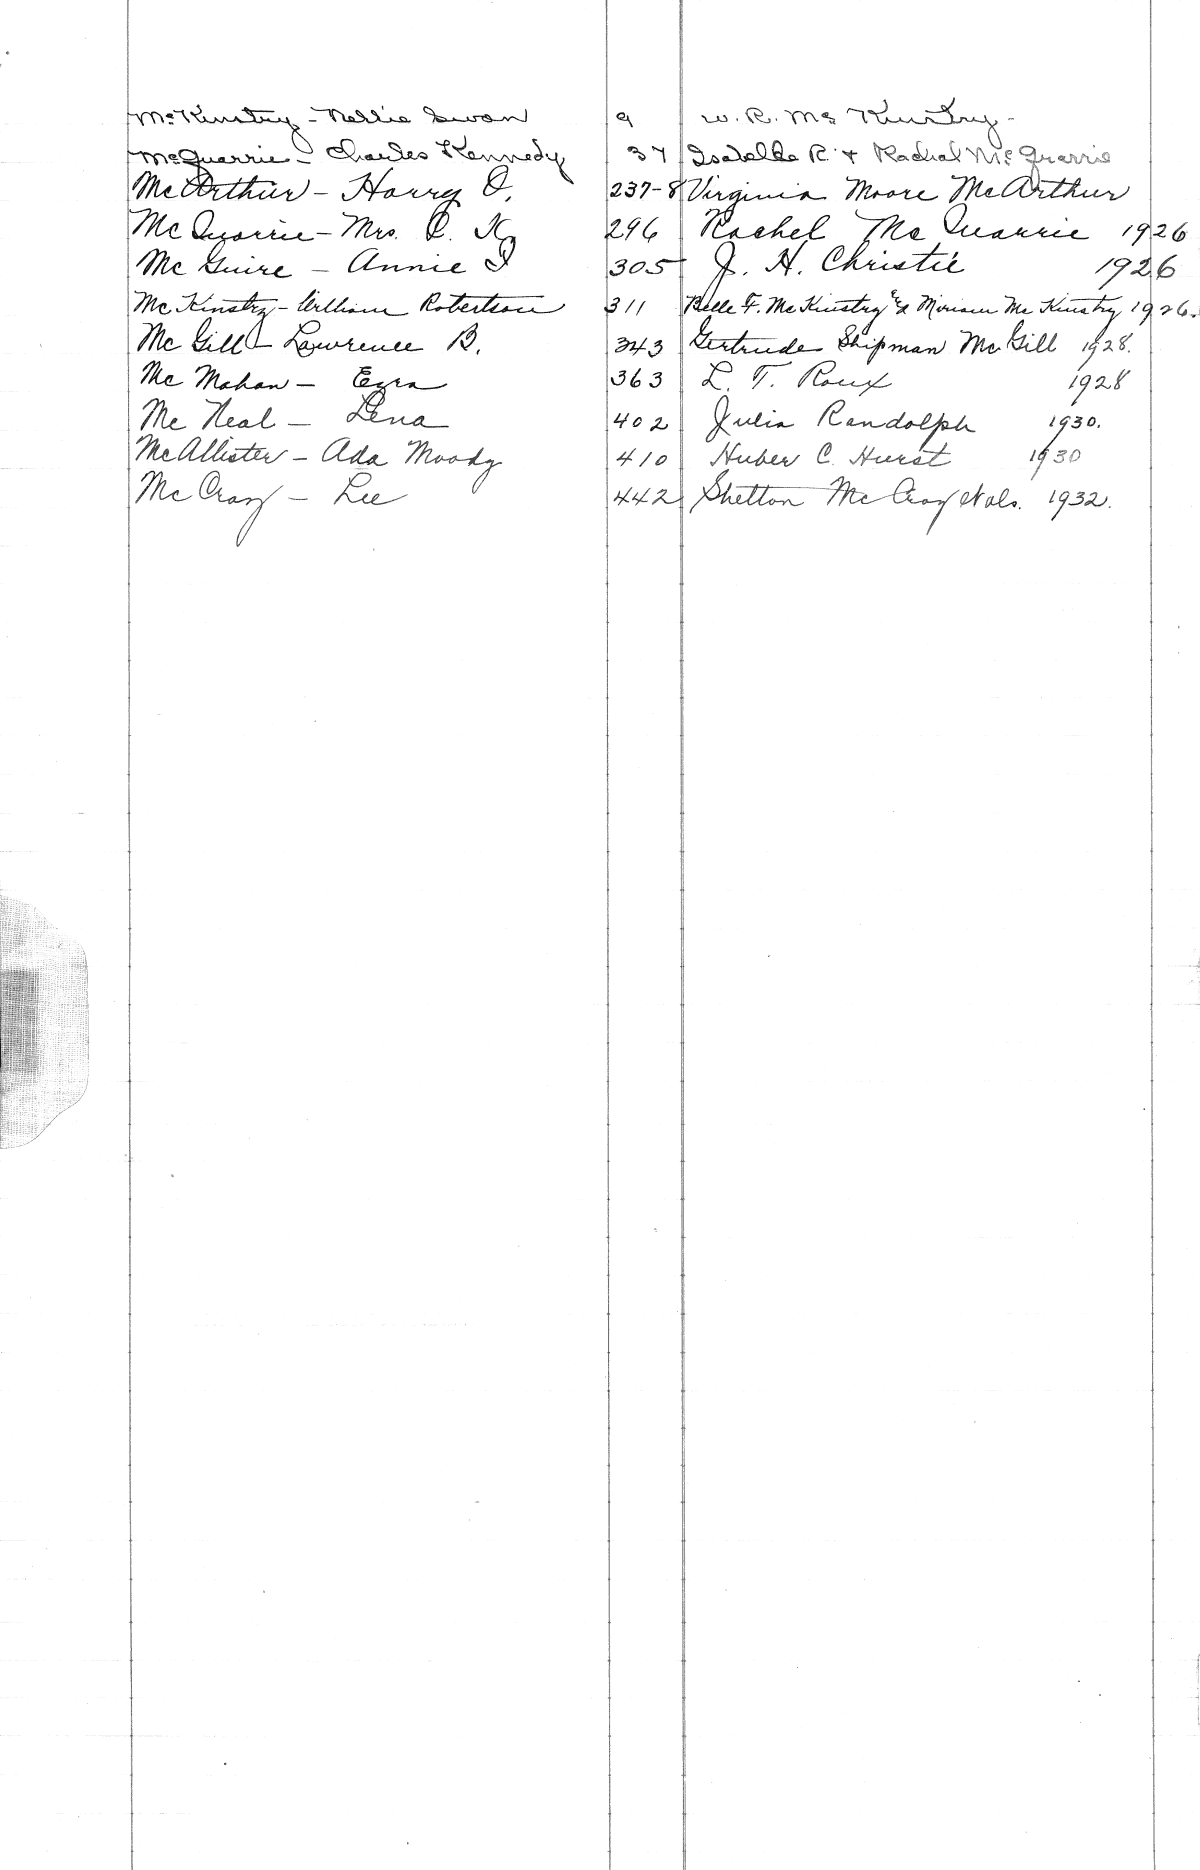 McKinstry - Nellie Swan 9 W. R. McKinstry -
McQuarrie - Charles Kennedy 37 Isabelle R. + Rachal McQrarrie
McArthur - Harry O. 237-8 Virginia Moore McArthur
McQuarrie - Mrs. C. K. 296 Rachel McQuarrie 1926
McGuire - Annie I 305 J. H. Christie 1926
McKinstry - William Robertson 311 Belle F. McKinstry & Miriam McKinstry 1926.
McGill - Lawrence B. 343 Gertrude Shipman McGill 1928.
McMahan - Ezra 363 L. T. Roux 1928
McNeal - Lena 402 Julia Randolph 1930.
McAllister - Ada Moody 410 Huber C. Hurst 1930
McCray - Lee 442 Shelton McCray 1932.